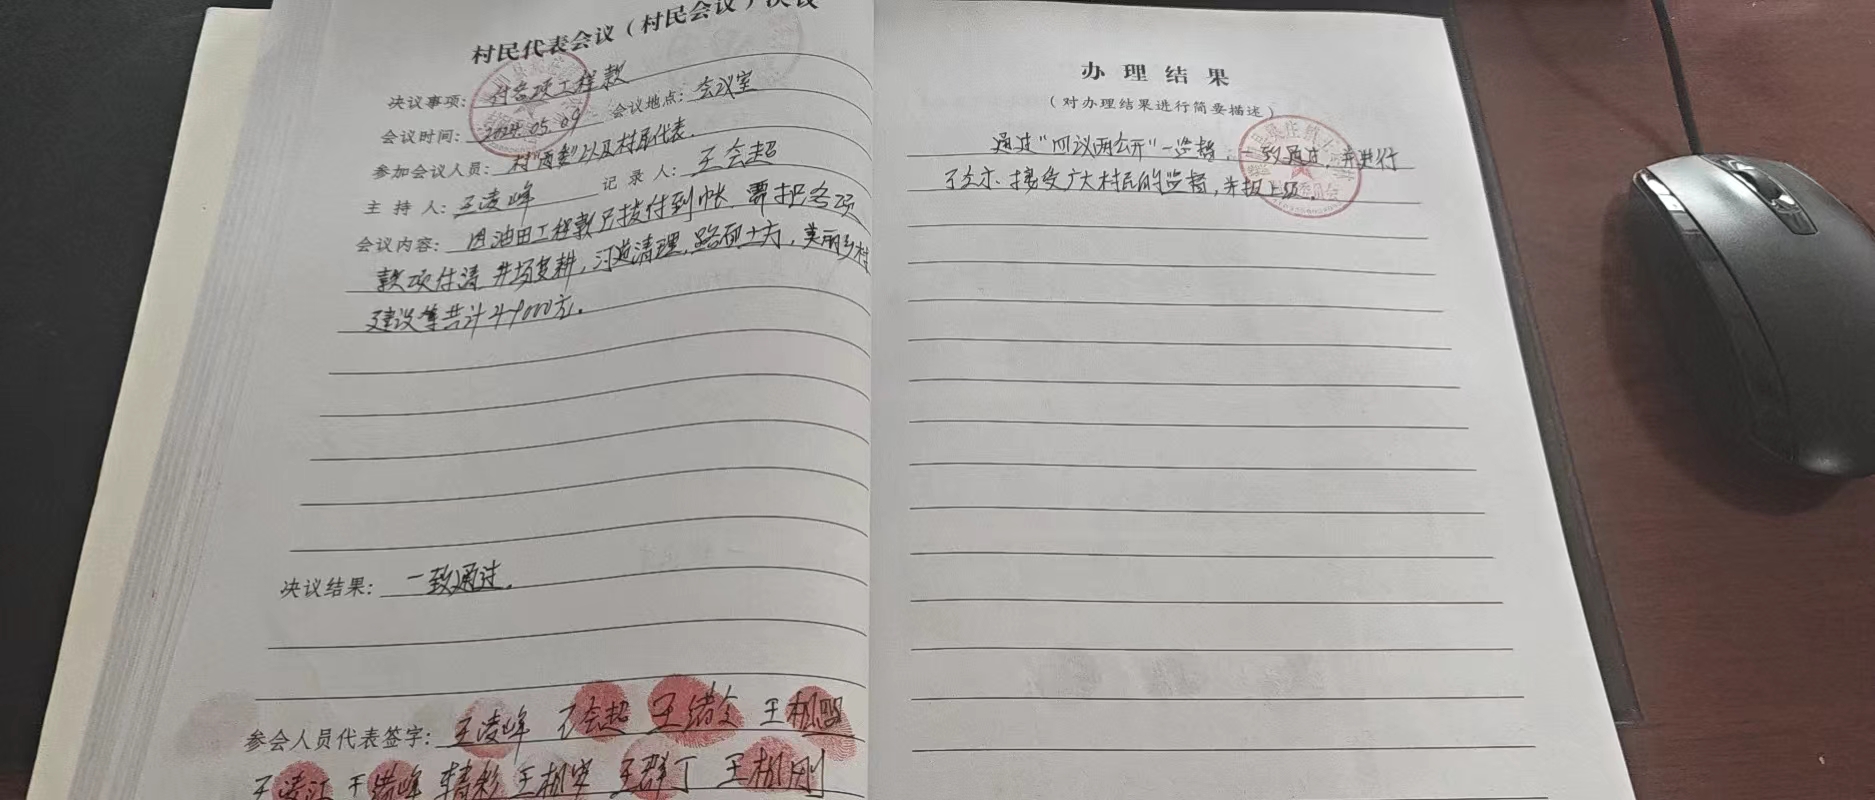 村民代表会议（村民会议）决议
决议事项： 村各项工程款
会议时间： 2024.05.09 会议地点： 会议室
参加会议人员： 村“两委”以及村民代表.
主持人： 王凌峰 记录人： 王会超
会议内容： 因油田工程款已拨付到帐，需把各项
款项付清 井场复耕，河道清理，路面土方，美丽乡村
建设等共计49000元.
决议结果： 一致通过.
参会人员代表签字： 王凌峰 王会超 王绪文
王凌江 王绪峰 王群丁 王相刚
办理结果
（对办理结果进行简要描述）
通过“四议两公开”一监督，一致通过，并进行
了公示、接受广大村民的监督，并报上级.